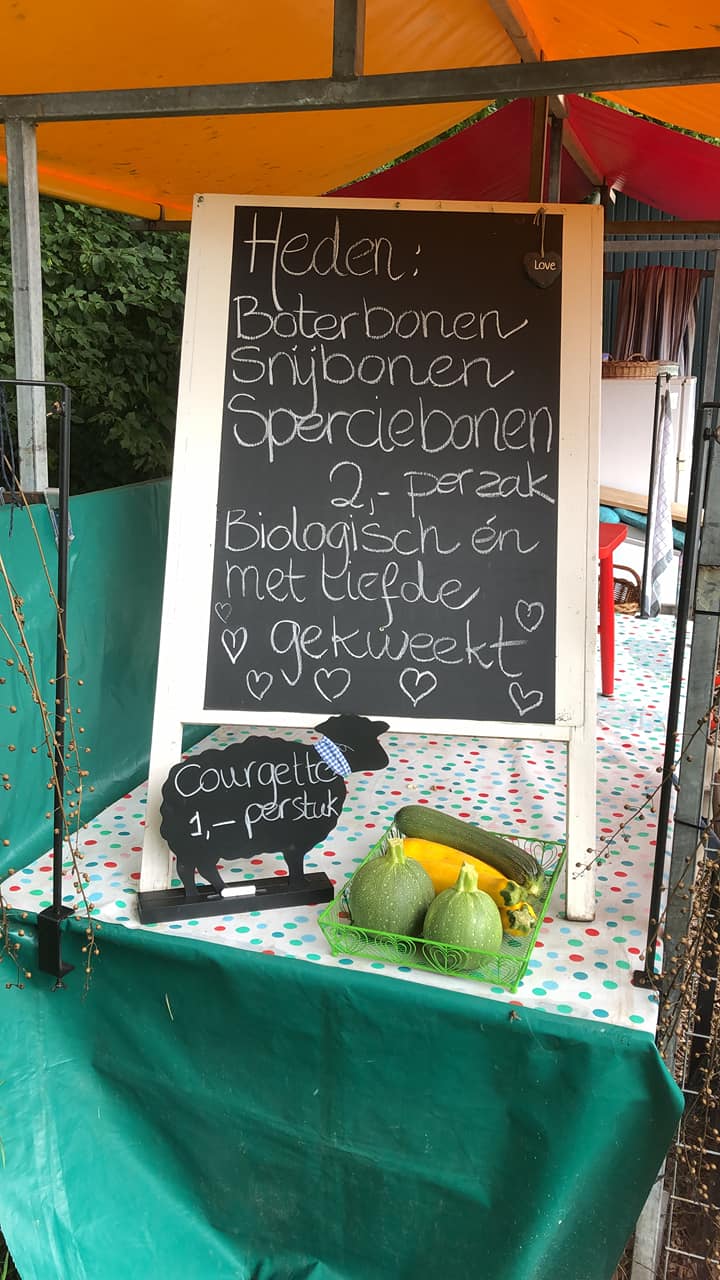 Heden:
Love
Boterbonen
Snijbonen
Sperciebonen
2,- per zak
Biologisch én
met liefde
gekweekt
Courgette
1,- per stuk